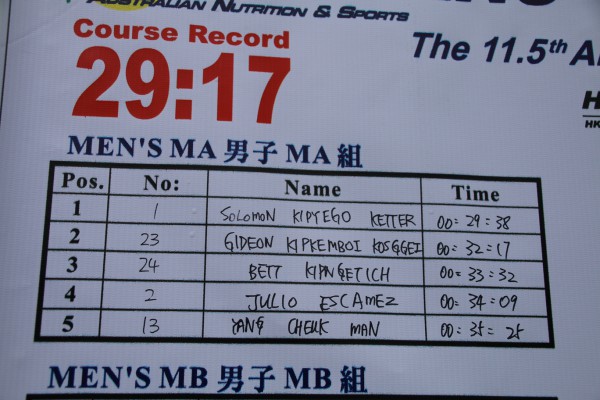 AUSTRALIAN NUTRITION & SPORTS
Course Record
29:17
The 11.5th A
MEN'S MA 男子 MA 組
Pos. No: Name Time
1 1 SOLOMON KIPYEGO KETTER 00:29:38
2 23 GIDEON KIPKEMBOI KOSGGEI 00:32:17
3 24 BETT KIPNGETICH 00:33:32
4 2 JULIO ESCAMEZ 00:34:09
5 13 YANG CHEUK MAN 00:35:25
MEN'S MB 男子 MB 組